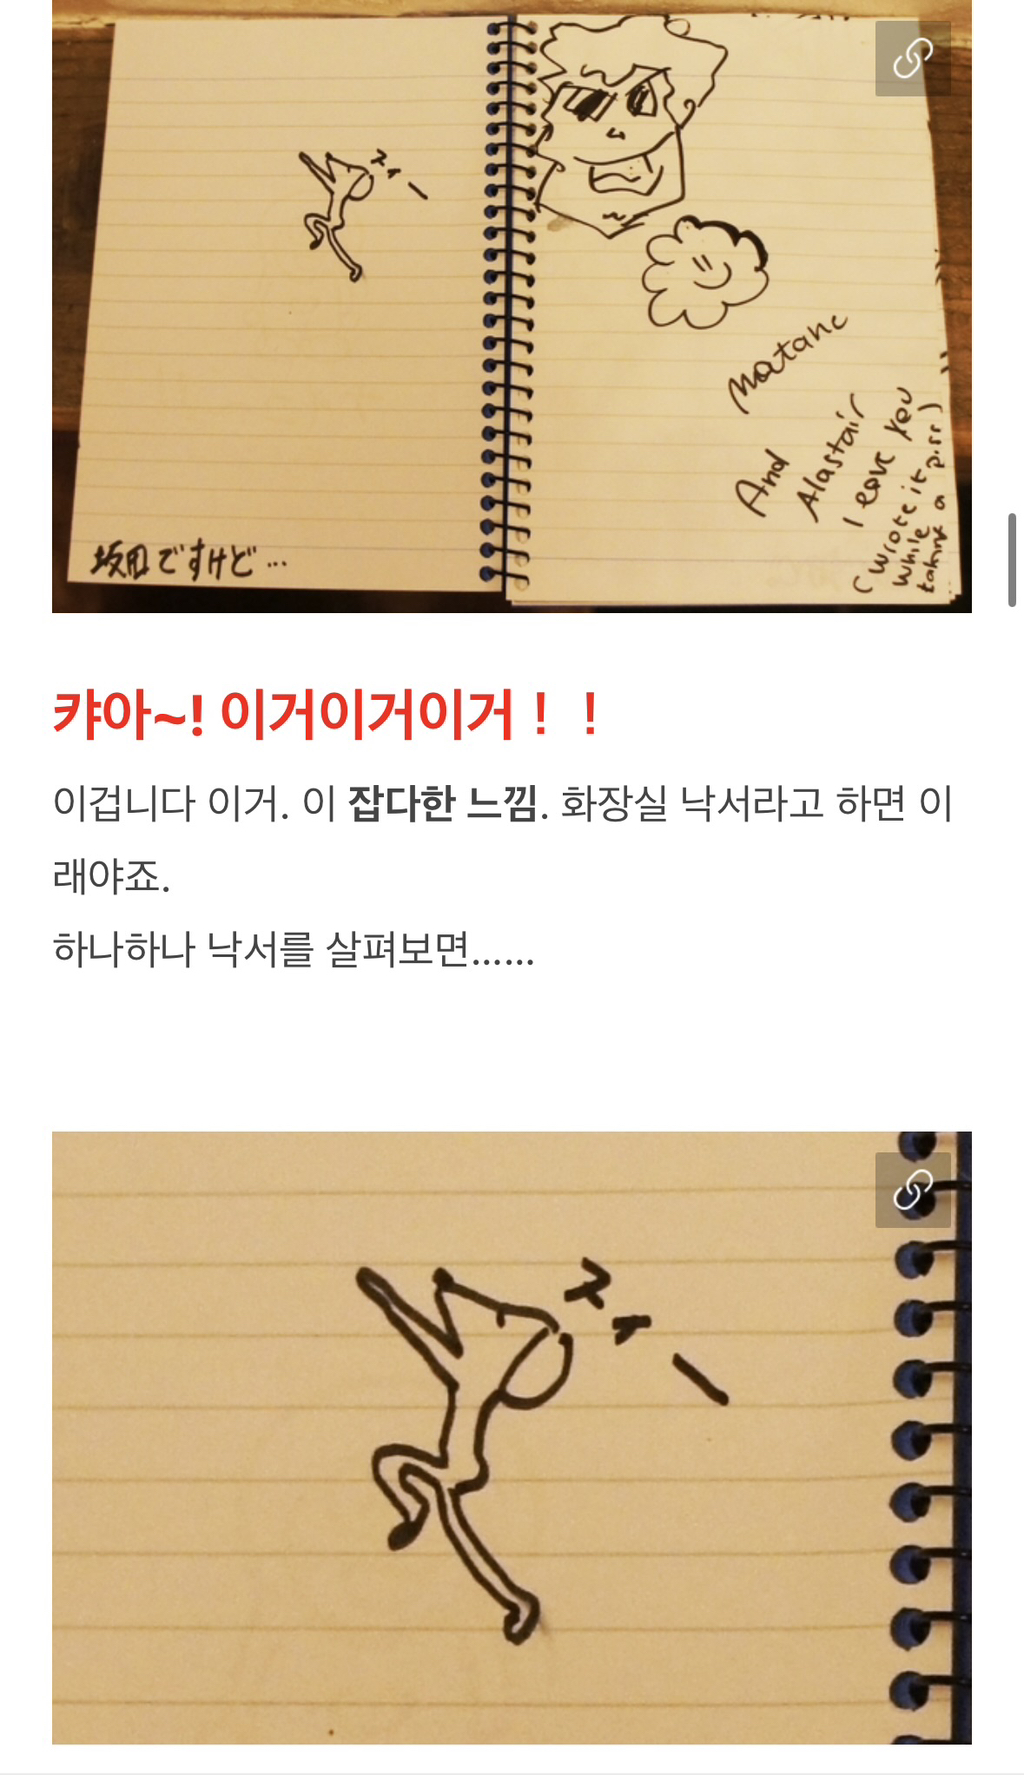 スィー
坂田ですけど…
Matane
And
Alastair
I leave you
(wrote it
while
taking a piss)
캬아~! 이거이거이거！！
이겁니다 이거. 이 잡다한 느낌. 화장실 낙서라고 하면 이
래야죠.
하나하나 낙서를 살펴보면......
スィー